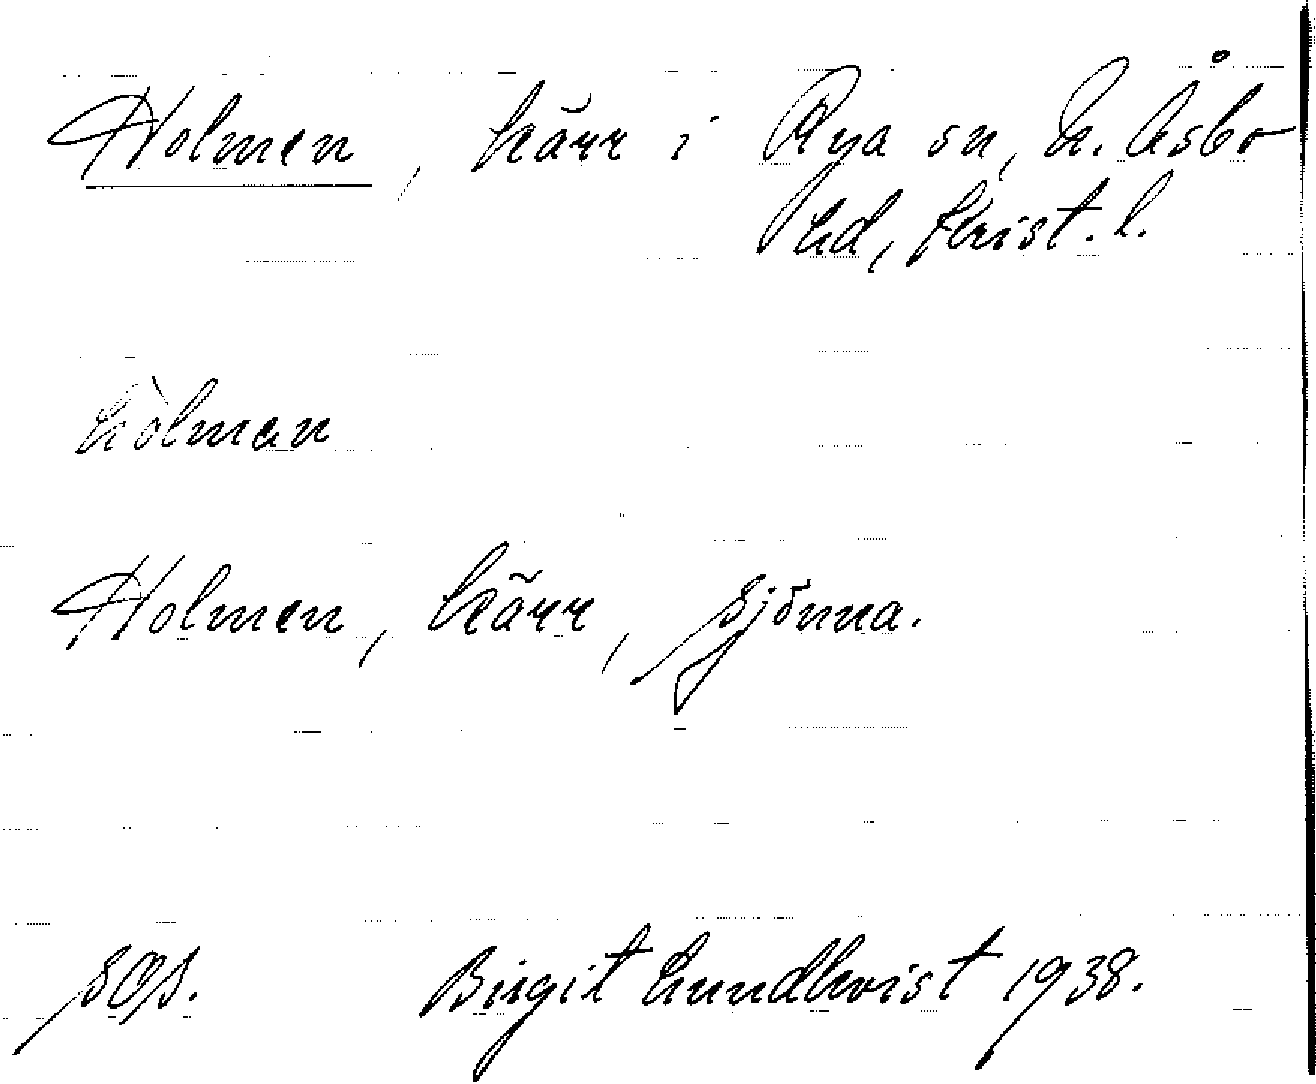 Holmen, kärr i Rya sn, N. Åsbo
hd, Krist. l.
hòlman
Holmen, kärr, Sjönna.
SOS. Birgit Lundkvist 1938.